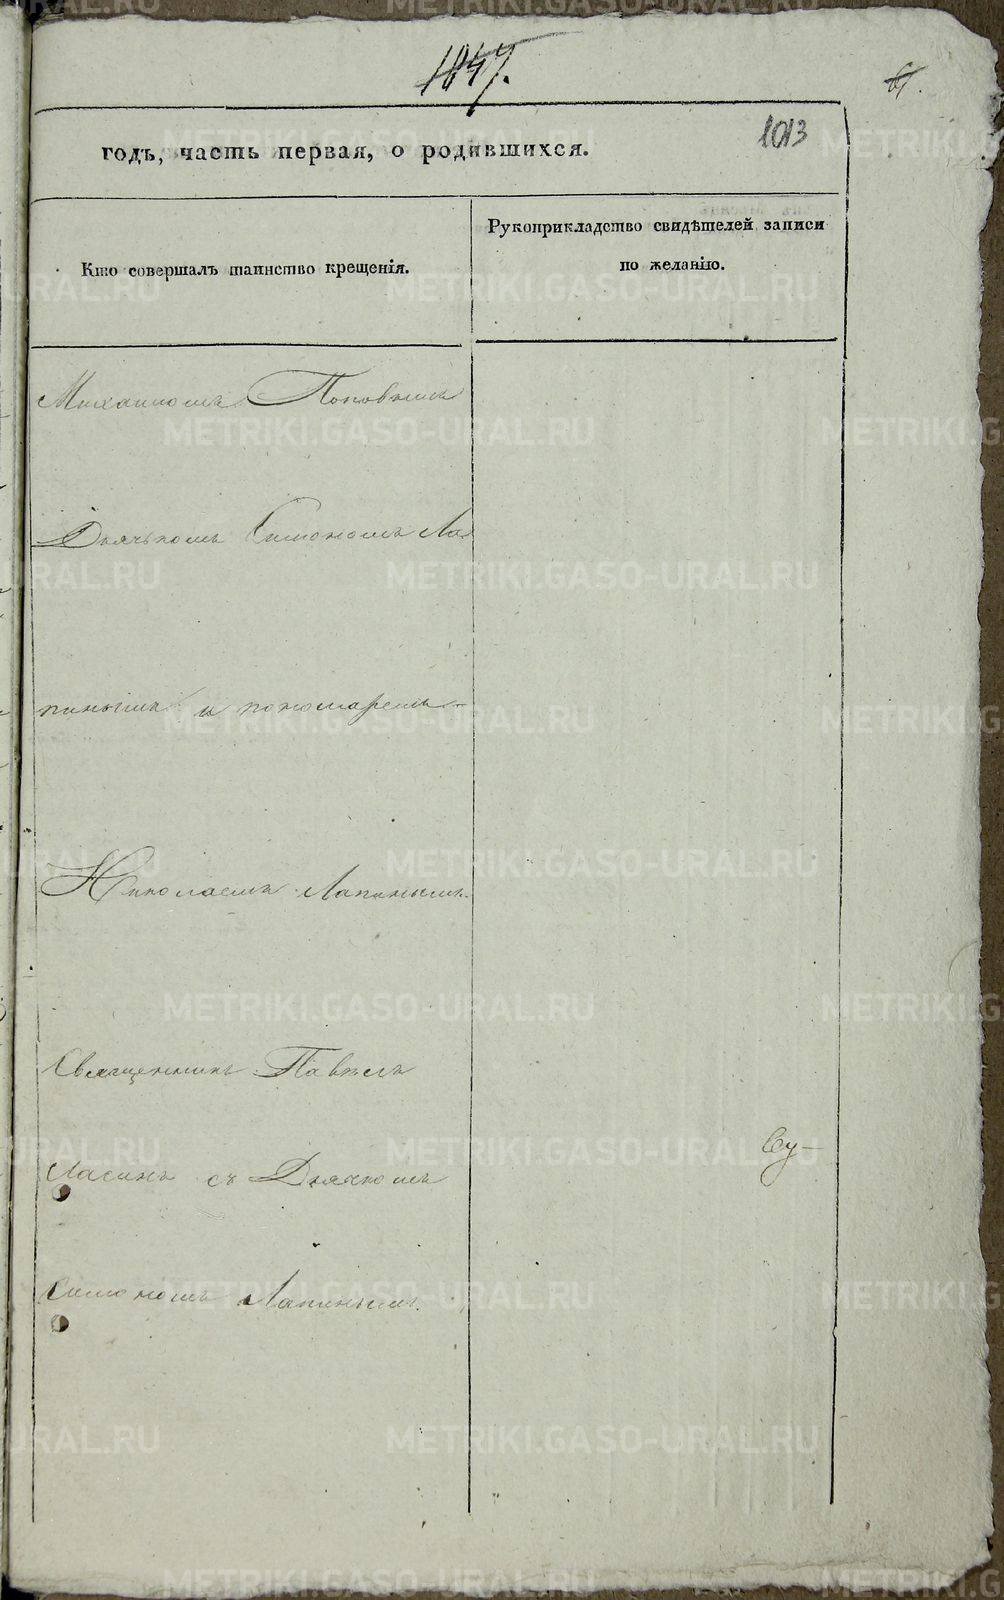 1847.
67.
1013
годъ, часть первая, о родившихся.
Кто совершалъ таинство крещенія.
Рукоприкладство свидѣтелей записи
по желанію.
Михаиломъ Поповымъ
Дьячькомъ Симономъ Ла
пинымъ и пономаремъ
Николаемъ Лапинымъ.
Священникъ Павелъ
съ Дьячкомъ
Симономъ Лапинымъ.
METRIKI.GASO-URAL.RU